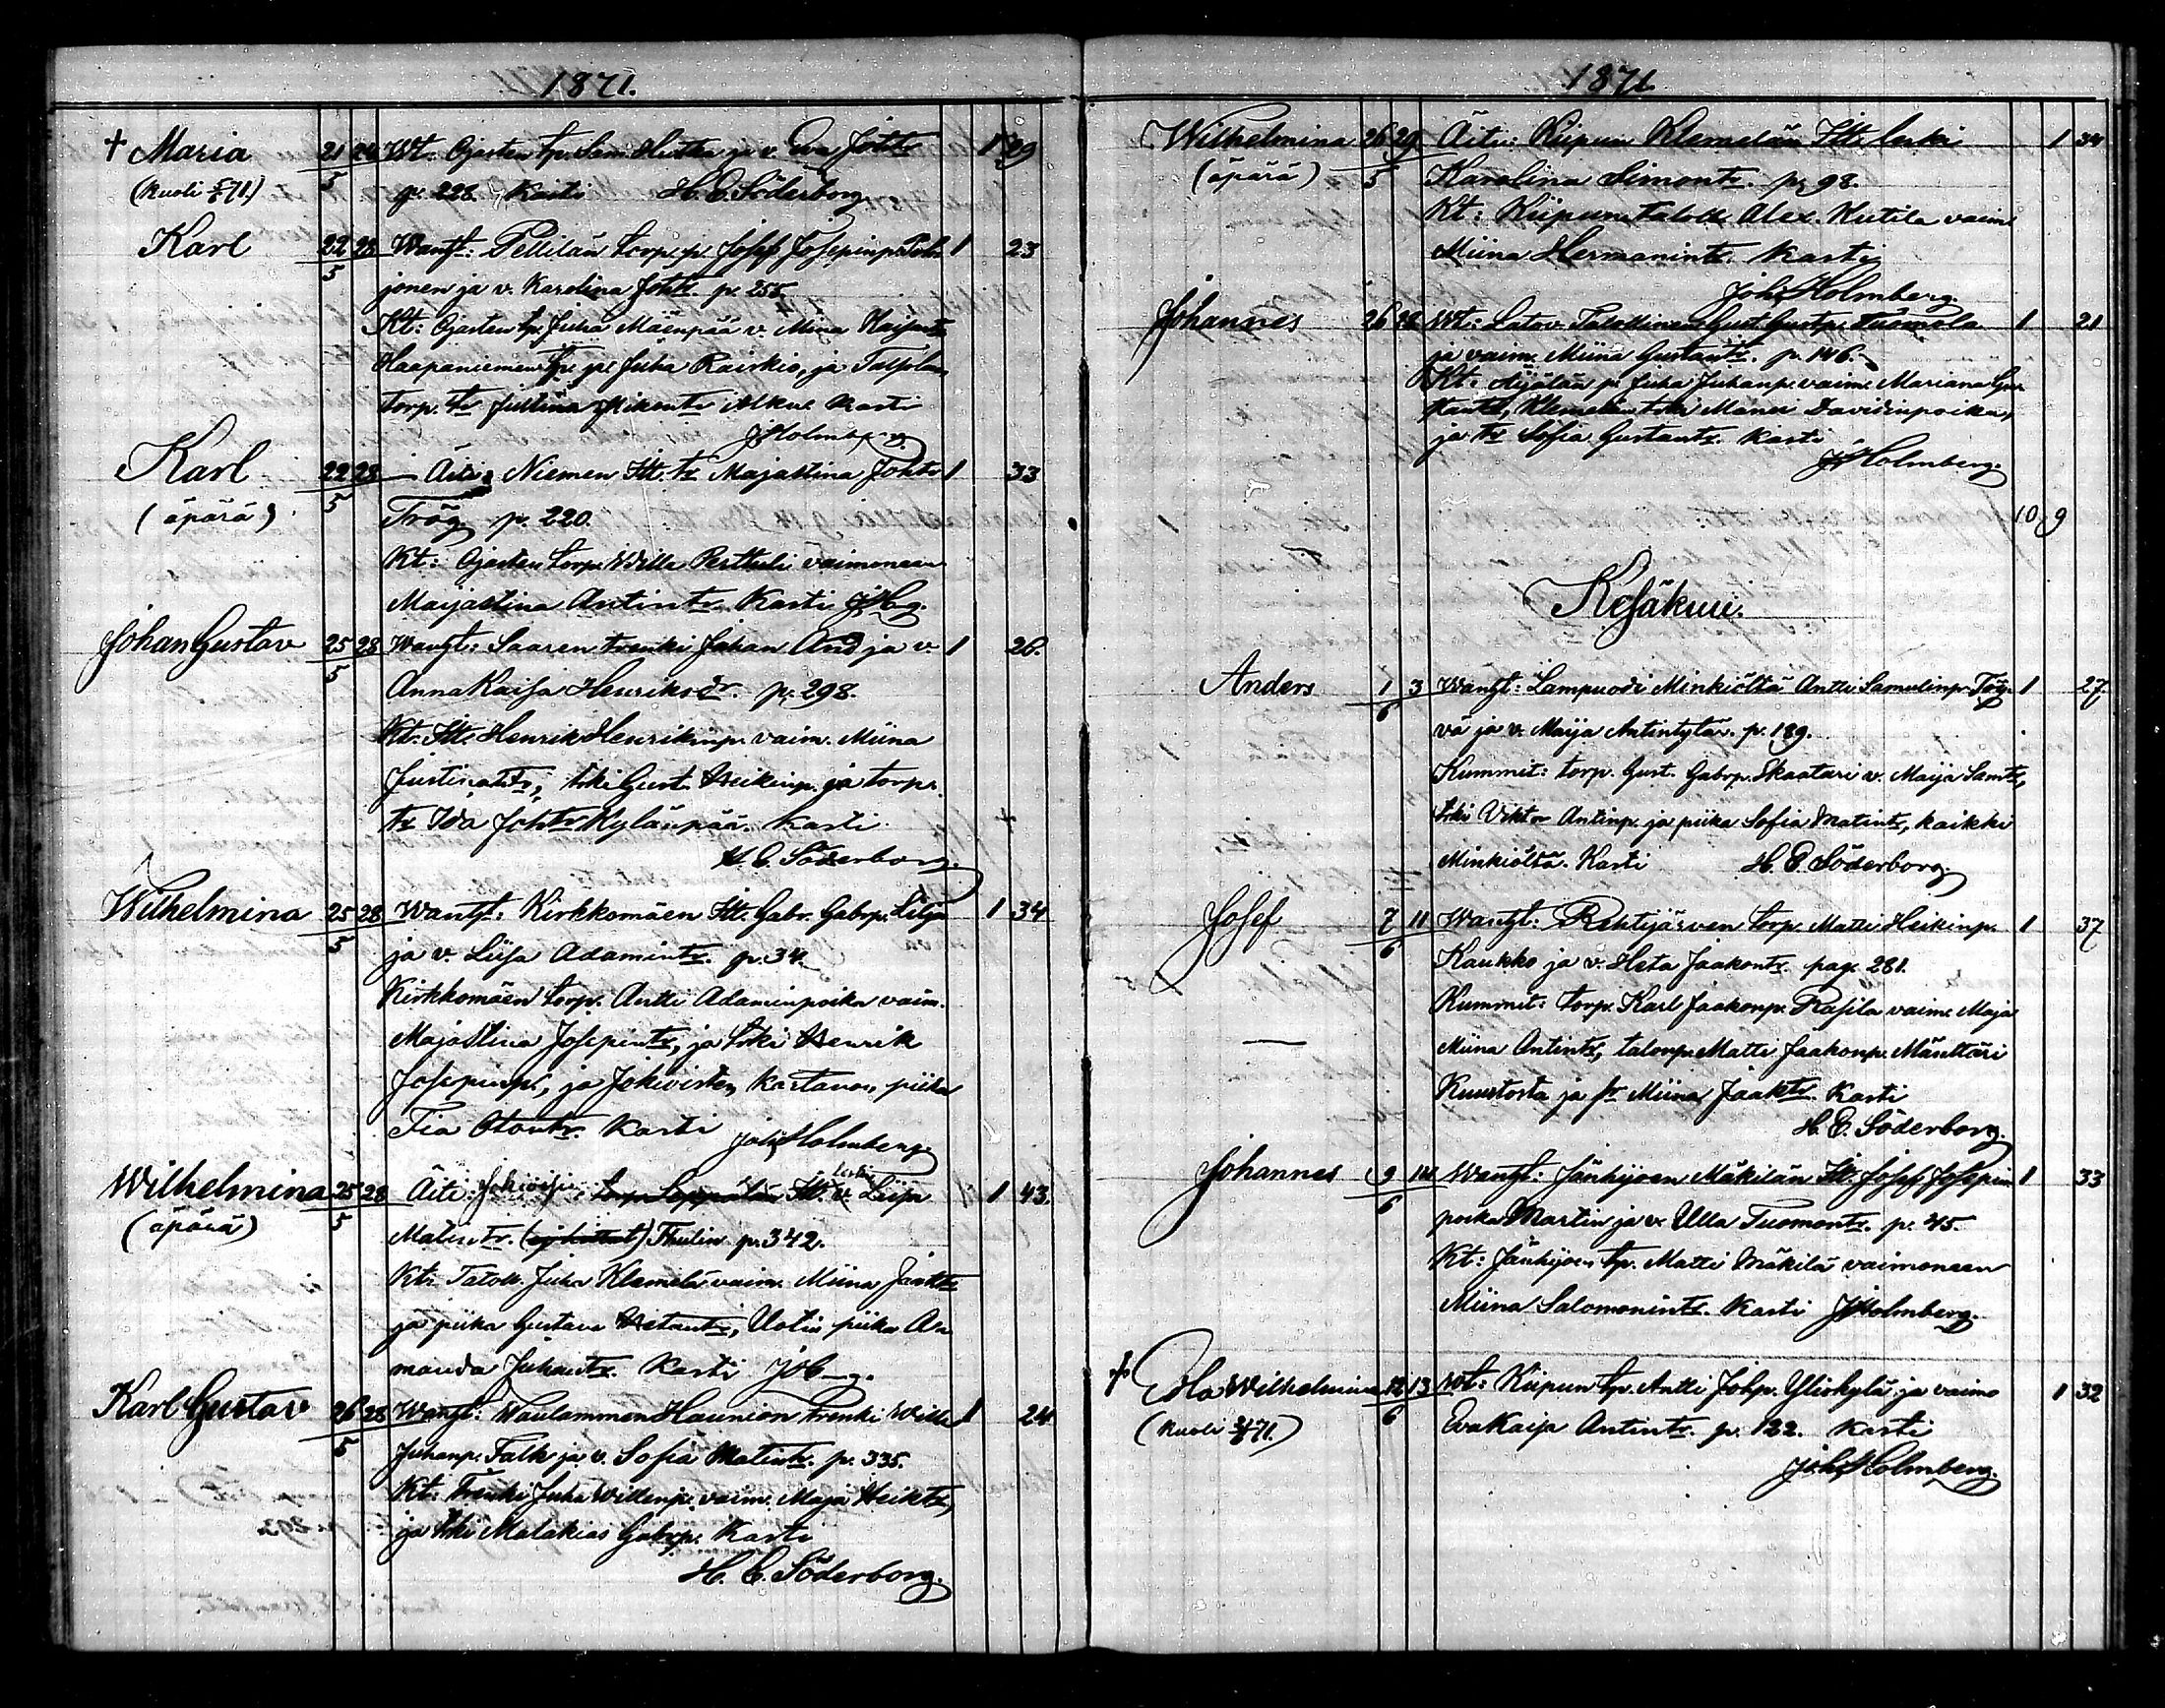 1871.
† Maria 21 24 Wt: Ojasten tp. Sam. Heikka ja v. Eva Johtr 1 29
(Kuoli 5/5 71.) 5 p. 228. Kasti H. E. Söderborg.
Karl 22 28 Wangt: Pellilän torp. p. Josef Josepinp. 1 23
5 jonen ja v. Karolina Johtr. p. 255.
Kt: Ojasten tp. Juha Mäenpää v. Mina
Haapaniemen tp. p. Juha Rairkio, ja
torp. tr Justina Mikontr Kasti
JHolmberg.
Karl 22 28 Äiti: Niemen Itt. tr Majastina Johtr 1 33
(äpärä) 5 Trög p. 220.
Kt: Ojasten torp. Wille Perttuli vaimoneen
Maijastina Antintr. Kasti JHbg.
Johan Gustav 25 28 Wangt: Saaren trenki Johan And ja v. 1 26.
5 Anna Kaisa Henriksdr. p. 298.
Kt. Itt. Henrik Henrikinp. vaim. Miina
Justinatr, trki Gust. Heikinp. ja torp.
tr Ida Johtr Kylänpää. Kasti
H. E. Söderborg.
Wilhelmina 25 28 Wangt: Kirkkomäen Itt. Gabr. Gabrp. Lilja 1 34
5 ja v. Liisa Adamintr. p. 34.
Kirkkomäen torp. Antti Adaminpoika vaim.
Majastina Josepintr, ja trki Henrik
Josepinp., ja Jokioisten kartanon piika
Fia Otontr. Kasti Joh. Holmberg.
Wilhelmina 25 28 Äiti: Jokioisi. Itt. v. leski Liisa 1 43.
(äpärä) 5 Matintr. Thulin. p. 342.
Kt: Taloll. Juha Klemelä vaim. Miina Jaaktr
ja piika Gustava, Uotin piika A
manda Juhantr. Kasti JHb-g.
Karl Gustav 26 28 Wangt: Waulammen Haunion trenki Wille 1 24
5 Juhanp. Falk ja v. Sofia Matintr. p. 335.
Kt: Trenki Juha Willenp. vaim. Maja Heiktr,
ja trki Malakias Gabrp. Kasti
H. E. Söderborg.
1871.
Wilhelmina 26 29 Äiti: Kiipun Klemelän Itt. leski 1 34
(äpärä) 5 Karolina Simontr. p. 98.
Kt: Kiipun taloll. Alex. Kutila vaim.
Miina Hermanintr. Kasti
Joh. Holmberg.
Johannes 26 28 Wt: Latov. Talollinen Gust Gustp. Tuomola 1 21
5 ja vaim. Miina Gustantr. p. 146.
Kt: Äijälän p. Juha Juhanp. vaim. Mariana Gus
tantr, Klemelän trki Manu Davidinpoika,
ja tr Sofia Gustantr. Kasti
JHolmberg.
10 9
Kesäkuu.
Anders 1 3 Wangt: Lampuodi Minkiöltä Antti Samulinp. Töy- 1 27
6 vä ja v. Maija Antintytär. p. 189.
Kummit: torp. Gust. Gabrp. Skaatari v. Maija Samtr,
trki Viktor Antinp. ja piika Sofia Matintr, kaikki
Minkiöltä. Kasti H. E. Söderborg
Josef 7 11 Wangt: Rehtijärven torp. Matti Heikinp. 1 37
6 Kaukko ja v. Heta Jaakontr. pag. 281.
Kummit: torp. Karl Jaakonp. Rasila vaim. Maja
Miina Antintr, talonp. Matti Jaakonp. Mänttäri
Kuustosta ja pr Miina Jaaktr. Kasti
H. E. Söderborg.
Johannes 9 14 Wangt: Jänhijoen Mäkilän Itt. Josef Josepin 1 33
6 poika Martin ja v. Ulla Tuomontr. p. 45.
Kt: Jänhijoen tp. Matti Mäkilä vaimoneen
Miina Salomonintr. Kasti JHolmberg.
† Eda Wilhelmina 12 13 Wt: Kiipun tp. Antti Johp. Yliskylä ja vaimo 1 32
(Kuoli 71.) 6 Eva Kaisa Antintr. p. 122. Kasti
Joh. Holmberg.